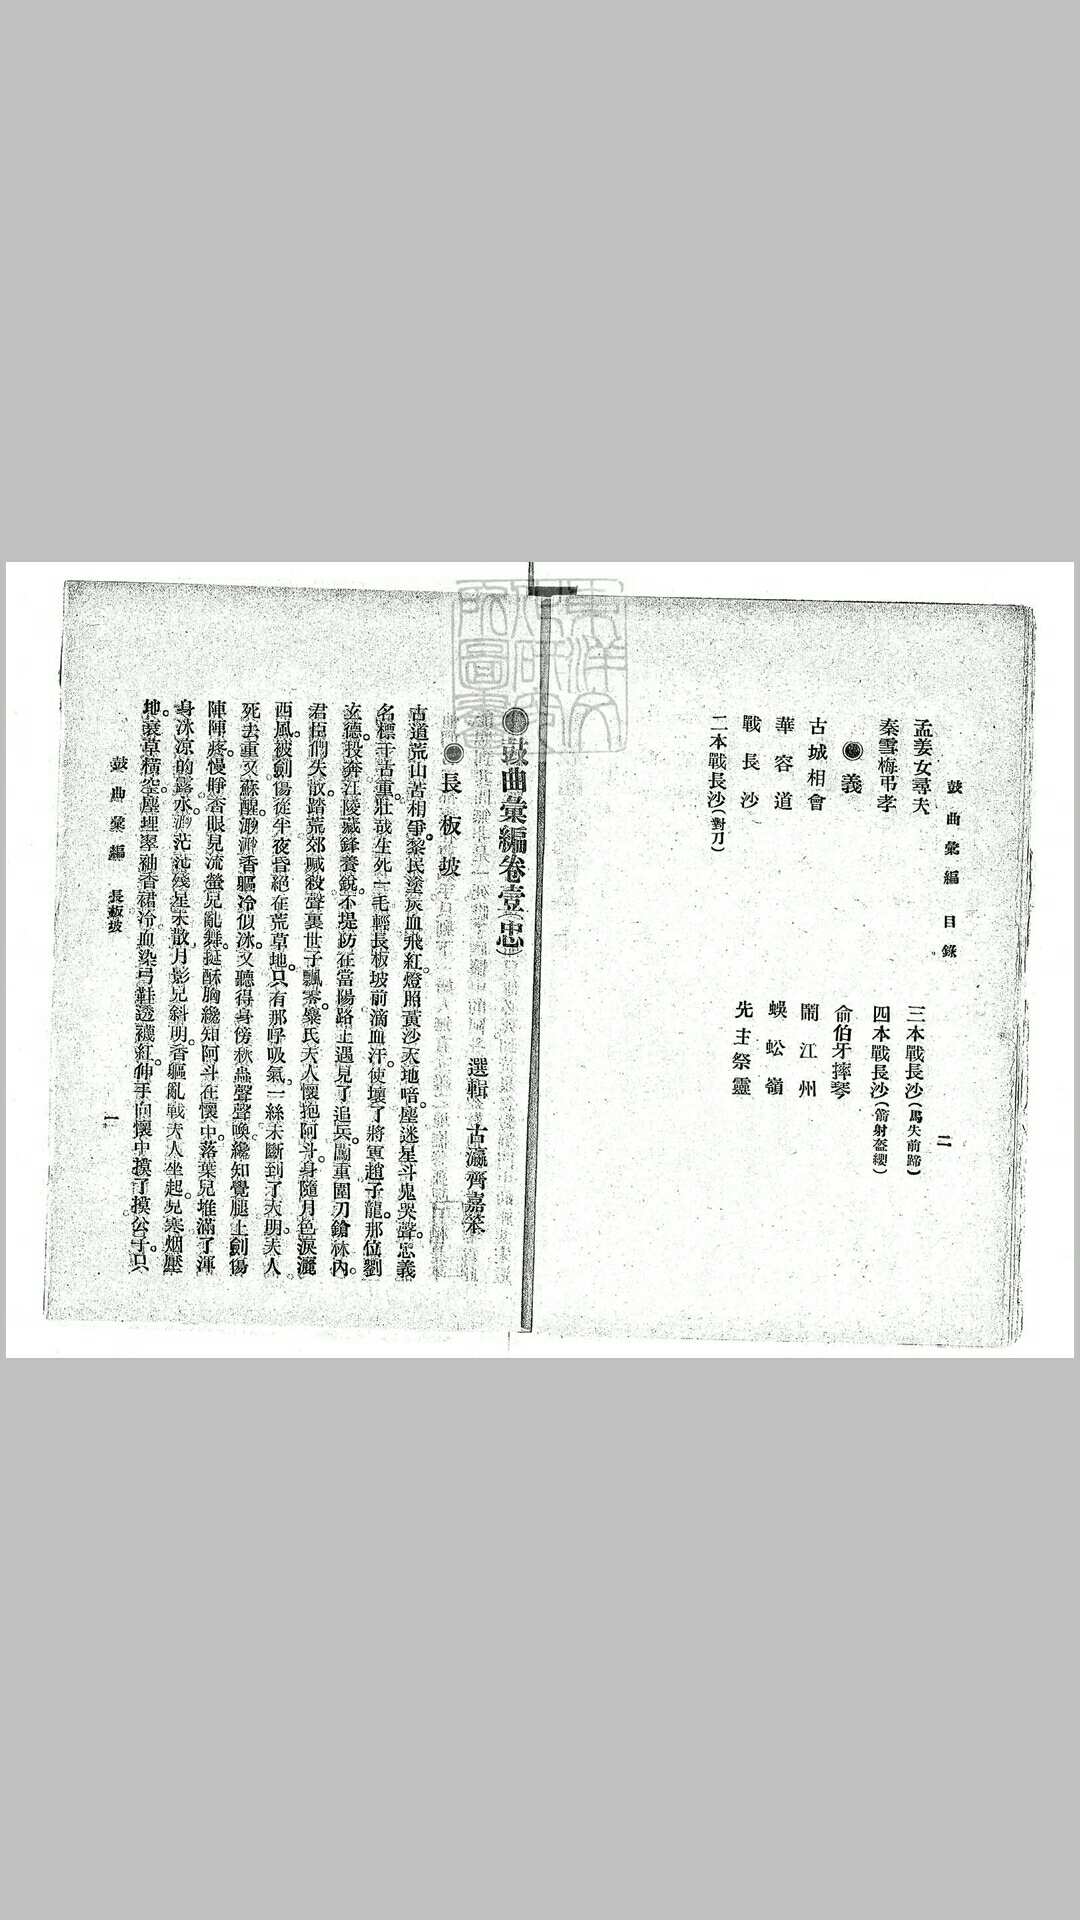 鼓曲彙編 目錄 二
孟姜女尋夫
秦雪梅弔孝
三本戰長沙(馬失前蹄)
四本戰長沙(箭射盔纓)
義
古城相會
華容道
戰長沙
二本戰長沙(對刀)
俞伯牙摔琴
鬧江州
蜈蚣嶺
先主祭靈
鼓曲彙編卷壹(忠)
長板坡 選輯 古瀛齊嘉笨
古道荒山苦相爭。黎民塗炭血飛紅。燈照黃沙天地暗。塵迷星斗鬼哭聲。忠義
名標千古重。壯哉生死一毛輕。長板坡前滴血汗。使壞了將軍趙子龍。那位劉
玄德。投奔江陵藏鋒養銳。不堤防在當陽路上遇見了追兵。闖重圍刀鎗林內。
君臣們失散。踏荒郊喊殺聲裏世子飄零。糜氏夫人懷抱阿斗。身隨月色淚灑
西風。被劍傷從半夜昏絕在荒草地。只有那呼吸氣一絲未斷到了天明。夫人
死去重又蘇醒。漸漸香軀冷似冰。又聽得身傍秋蟲聲聲喚。纔知覺腿上劍傷
陣陣疼。慢睜杏眼見流螢兒亂舞。挺酥胸纔知阿斗在懷中。落葉兒堆滿了渾
身冰凉的露水。渺茫茫殘星未散。月影兒斜明。香軀亂戰夫人坐起。見寒烟壓
地。衰草橫空。塵埋翠袖香裙冷。血染弓鞋透襪紅。伸手向懷中摸了摸公子。只
鼓曲彙編 長板坡 一
東洋文